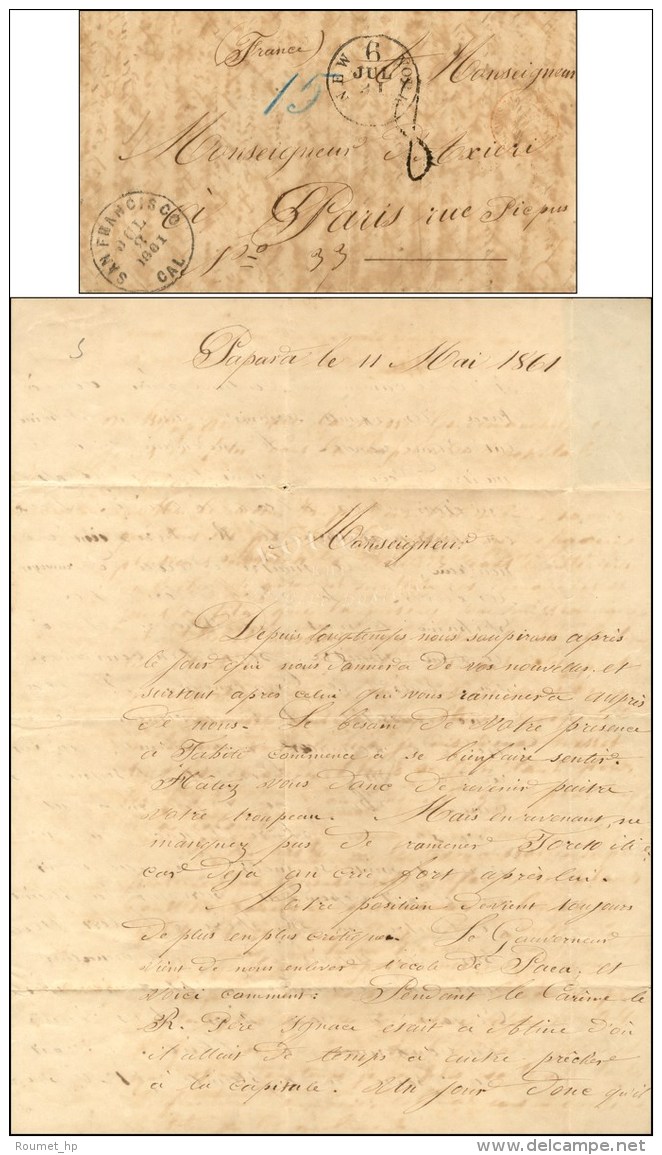 (France)
NEW YORK
6
JUL
15
A Monseigneur
Monseigneur d'Axieri
à Paris rue Picpus
no 33
SAN FRANCISCO
JUL
1861
CAL
Papara le 11 Mai 1861
Monseigneur
Depuis longtemps nous soupirons après
le jour qui nous donnera de vos nouvelles et
surtout après celui qui vous ramenera auprès
de nous. Le besoin de Votre présence
à Tahiti commence à se bien faire sentir.
Hâtez vous donc de revenir paitre
votre troupeau. Mais en revenant, ne
manquez pas de ramener
car déjà on crie fort après lui.
Notre position devient toujours
de plus en plus critique. Le Gouverneur
vient de nous enlever l'école de Paea, et
voici comment: Pendant le Carême le
R. Père Ignace était à d'où
il allait de temps à autre prêcher
à la capitale. Un jour donc qu'il
Roumet_hp
delcampe.net